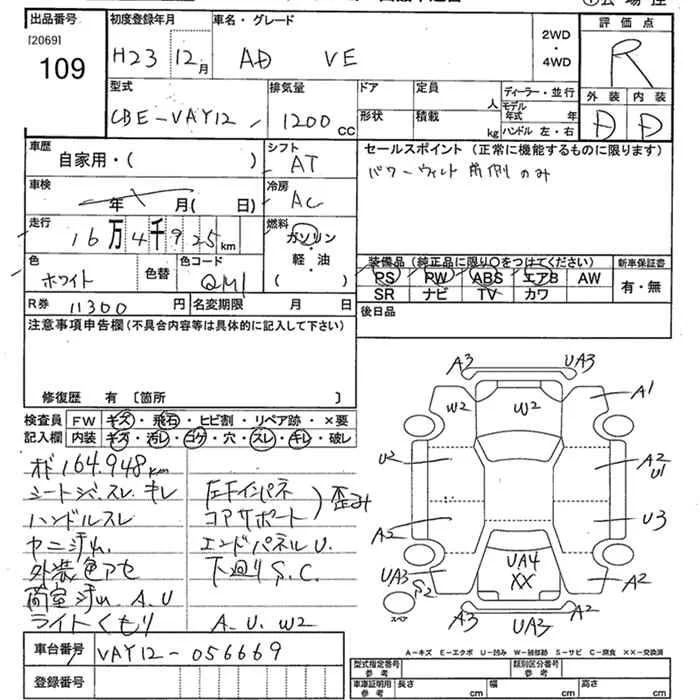 出品番号
[2069]
109
初度登録年月
H23 12月
車名・グレード
AD VE
2WD
・
4WD
評価点
R
外装 内装
D D
型式
CBE-VAY12
排気量
1200cc
ドア
形状
定員
人
積載
kg
ディーラー・並行
モデル
年式 年
ハンドル 左・右
車歴
自家用・( )
シフト
AT
車検
年 月( 日)
冷房
AC
走行
16万4千925km
燃料
ガソリン
軽・油
( )
色
ホワイト
色替
色コード
QM1
R券 11300 円
名変期限 月 日
セールスポイント (正常に機能するものに限ります)
パワーウィンド前側のみ
装備品 (純正品に限り○をつけてください)
PS PW ABS エアB AW
SR ナビ TV カワ
新車保証書
有・無
後日品
注意事項申告欄(不具合内容等は具体的に記入して下さい)
修復歴 有 〔箇所 〕
検査員
記入欄
FW キズ・飛石・ヒビ割・リペア跡・×要
内装 キズ・汚レ・コゲ・穴・スレ・キレ・破レ
164.948km
シートジバスレ キレ
ハンドルスレ
ヤニ汚レ.
外装色アセ
荷室汚レ.A.U
ライトくもり
左Fインパネ
コアサポート
歪み
エンドパネルU.
下廻りS.C.
A.U.W2
A3 UA3
A1
W2 W2
U2
A2
U1
A2
U3
UA4
XX
UA3
S2
A2
スペア
A3 UA3 A2
A-キズ E-エクボ U-凹み W-補修跡 S-サビ C-腐食 ××-交換済
車台番号 VAY12-056669
登録番号
型式指定番号
参考
類別区分番号
参考
車庫証明用
参考
長さ cm 幅 cm 高さ cm